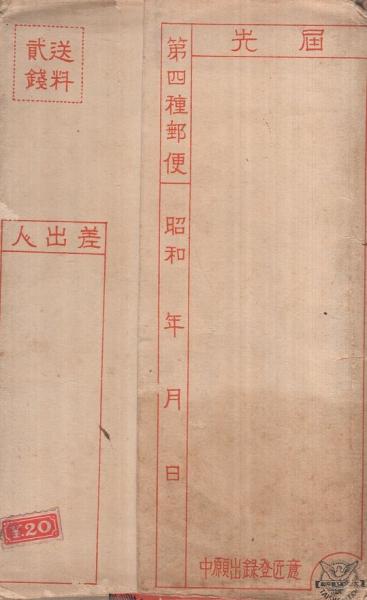 屆先
第四種郵便 昭和 年 月 日
送料
貳錢
差出人
意匠登錄出願中
¥.20